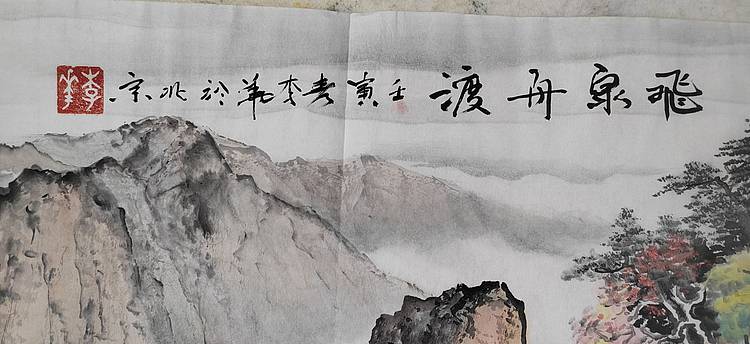 飛泉舟渡 壬寅春李華於北京